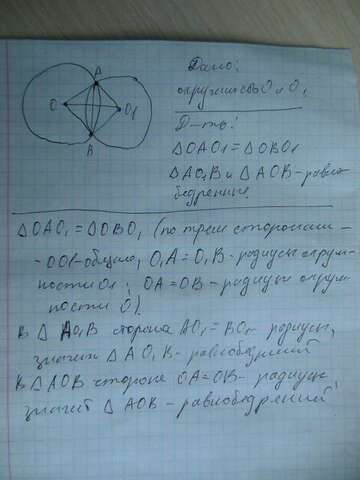 A
O
O1
B
Дано:
окружность O и O1
Д-ть:
ΔOAO1=ΔOBO1
ΔAO1B и ΔAOB-равно-
бедренные.
ΔOAO1=ΔOBO1 (по трем сторонам -
-OO1-общая, O1A=O1B-радиусы окруж-
ности O1; OA=OB-радиусы окруж-
ности O).
В ΔAO1B сторона AO1=BO1- радиусы,
значит ΔAO1B-равнобедренный
В ΔAOB сторона OA=OB- радиусы
значит ΔAOB-равнобедренный